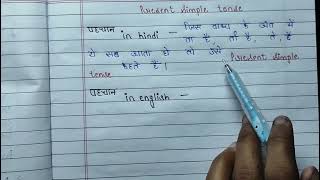 Present simple tense
पहचान in hindi - जिस वाक्य के अंत में
ता है, ती है, ते हैं
ये सब आता हो तो उसे Present simple
tense कहते हैं।
पहचान in english -